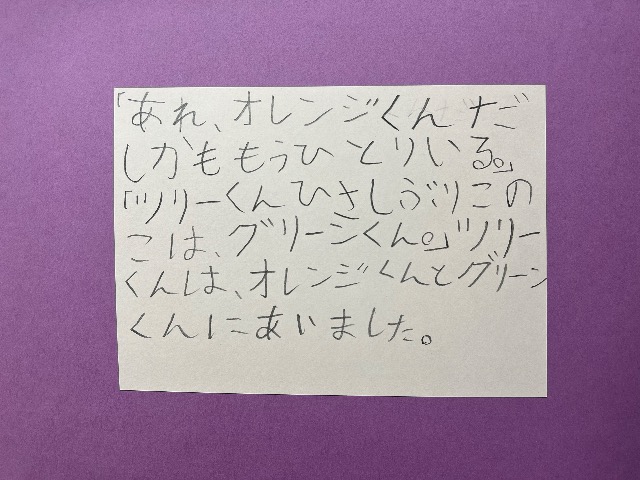 「あれ、オレンジくんだ
しかももうひとりいる。」
「ツリーくんひさしぶりこの
こは、グリーンくん。」ツリー
くんは、オレンジくんとグリーン
くんにあいました。